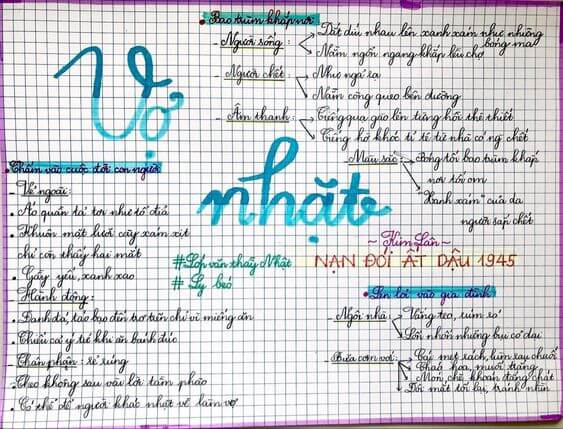 • Bao trùm khắp nơi
- Người sống:
Dắt díu nhau lên xanh xám như những bóng ma
Nằm ngổn ngang khắp lều chợ
- Người chết:
Như ngả rạ
Nằm còng queo bên đường
- Âm thanh:
Tiếng quạ gào lên từng hồi thê thiết
Tiếng hờ khóc tỉ tê từ nhà có ng' chết
- Màu sắc:
Bóng tối bao trùm khắp
nơi tối om
"Xanh xám" của da
người sắp chết
Vợ
nhặt
~ Kim Lân ~
NẠN ĐÓI ẤT DẬU 1945
#Lớp văn thầy Nhật
# Ly béo
• Thấm vào cuộc đời con người
- Vẻ ngoài:
• Áo quần tả tơi như tổ đỉa
• Khuôn mặt lưỡi cày xám xịt
chỉ còn thấy hai mắt
• Gầy yếu, xanh xao
- Hành động:
• Đanh đá, táo bạo đến trơ trẽn chỉ vì miếng ăn
• Thiếu cả ý tứ khi ăn bánh đúc
- Thân phận: rẻ rúng
• Theo không sau vài lời tầm phào
• Có thể để người khác nhặt về làm vợ
• Len lỏi vào gia đình
- Ngôi nhà:
Vắng teo, rúm ró
Lổn nhổn những bụi cỏ dại
- Bữa cơm
Cái mẹt rách, lùm rau chuối
Cháo hoa, muối trắng
Món chè khoán đắng chát
Đôi mắt tối lại, tránh nhìn